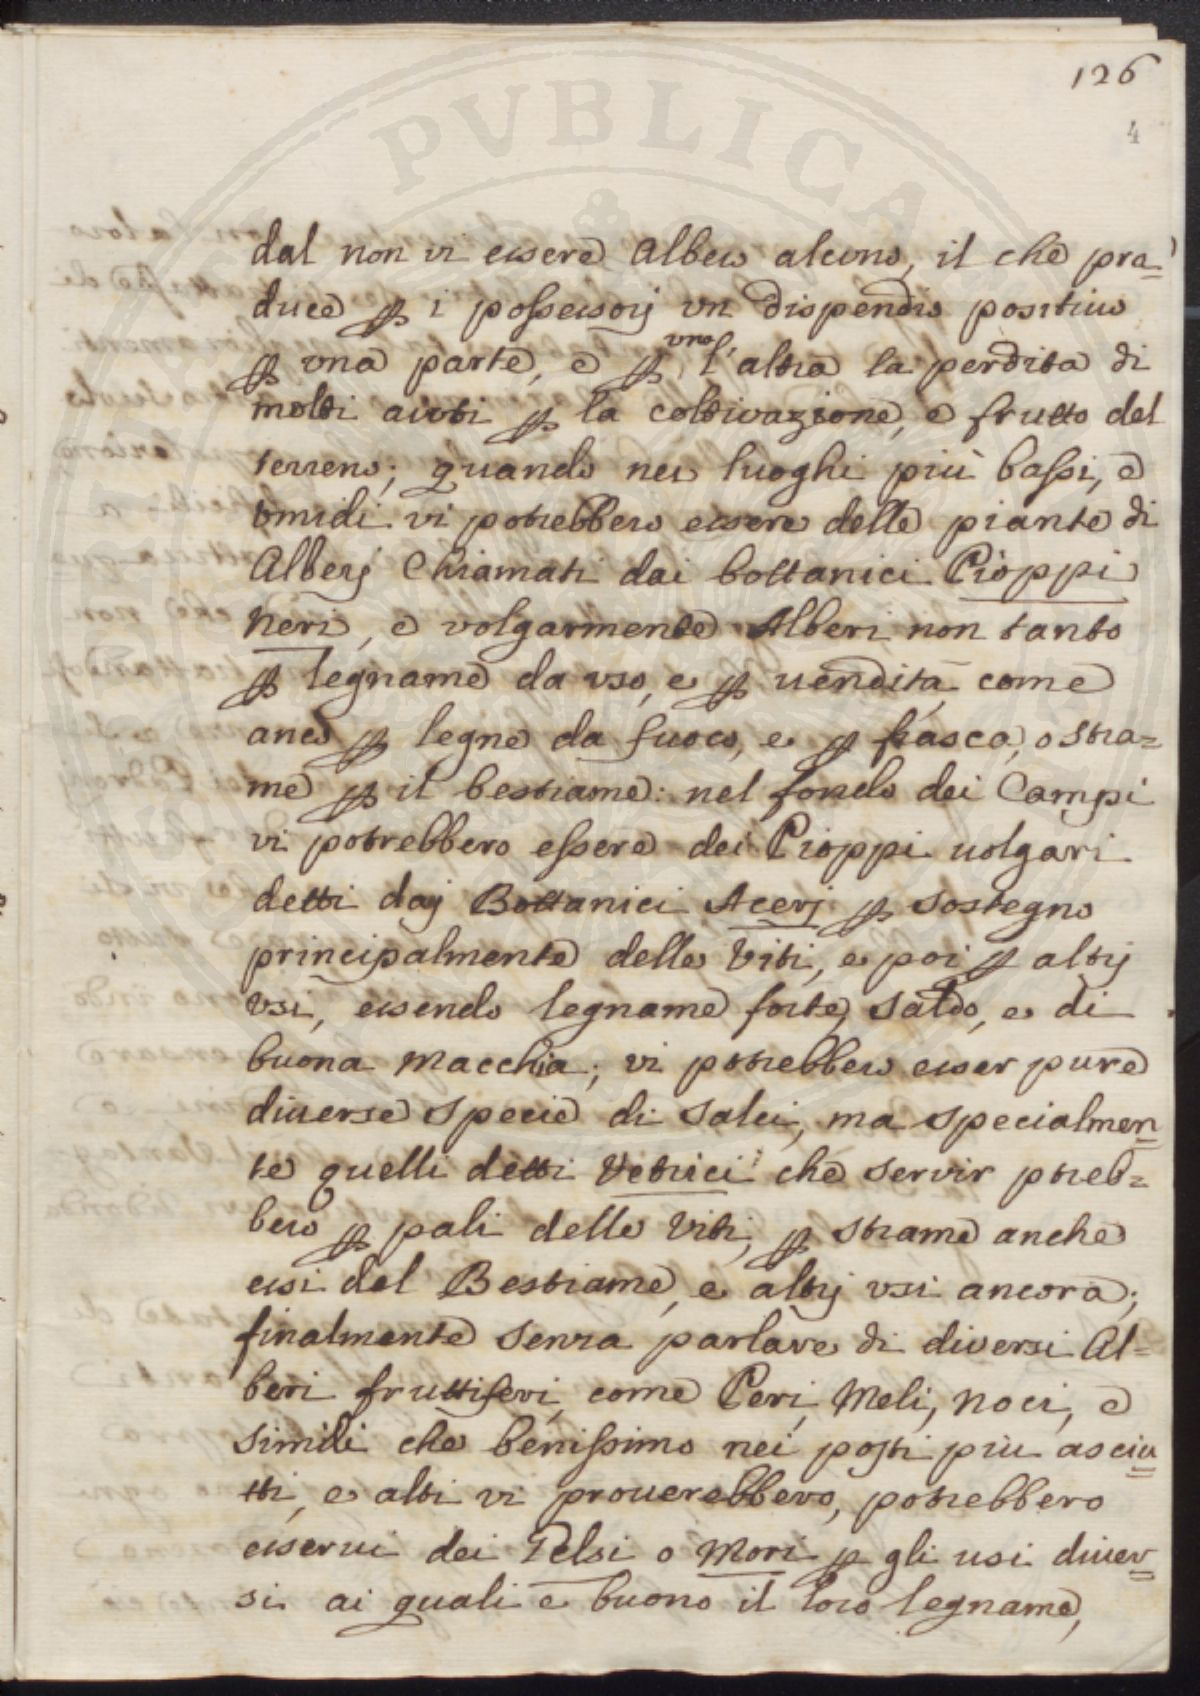 126
4
dal non vi essere Albero alcuno, il che pro-
duce ꝑ i possessorj un dispendio positivo
ꝑ una parte, e ꝑ l'altra la perdita di
molti aiuti ꝑ la coltivazione, e frutto del
terreno; quando nei luoghi più bassi, e
vmidi vi potrebbero essere delle piante di
Alberj Chiamati dai bottanici Pioppi
Neri, e volgarmente Alberi non tanto
ꝑ legname da uso, e ꝑ uendita come
anco ꝑ legne da fuoco, e ꝑ frasca, o stra=
me ꝑ il bestiame: nel fondo dei Campi
vi potrebbero essere dei Pioppi uolgari
detti daj Bottanici Acerj ꝑ sostegno
principalmente delle Viti, e poi ꝑ altrj
vsi, essendo legname forte, saldo, e di
buona macchia; vi potrebbero esser pure
diuerse specie di salci, ma specialmen=
te quelli detti Vetrici che servir potreb=
bero ꝑ pali delle Viti, ꝑ strame anche
essi del Bestiame, e altrj vsi ancora;
finalmente senza parlare di diversi Al=
beri fruttiferi, come Peri, Meli, Noci, e
simili che benissimo nei posti più asciu=
tti, e alti vi prouerebbero, potrebbero
esserui dei Gelsi o Mori ꝑ gli usi diuer=
si ai quali è buono il loro legname,